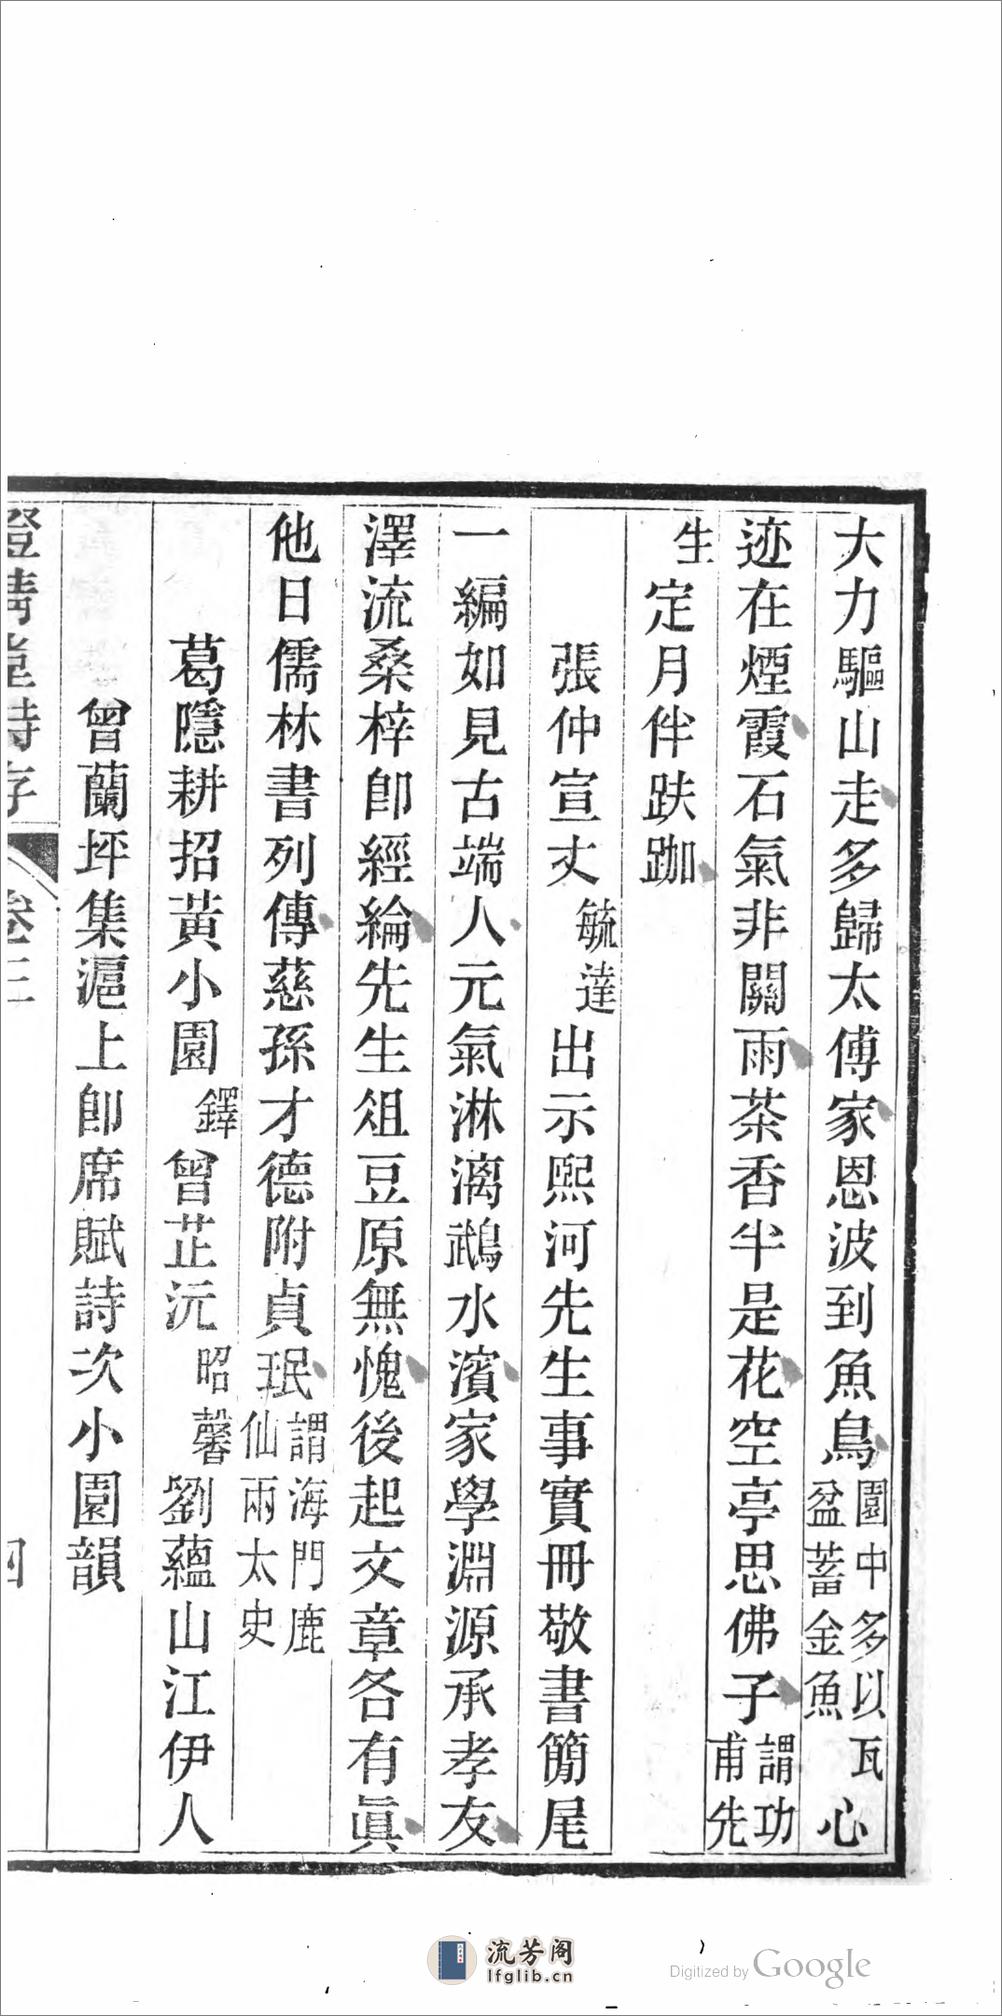 大力驅山走多歸太傅家恩波到魚鳥園中多以瓦盆蓄金魚心
迹在煙霞石氣非關雨茶香半是花空亭思佛子謂功甫先
生定月伴趺跏
張仲宣丈毓達出示熙河先生事實冊敬書簡尾
一編如見古端人元氣淋漓鵡水濱家學淵源承孝友
澤流桑梓卽經綸先生俎豆原無愧後起文章各有眞
他日儒林書列傳慈孫才德附貞珉謂海門鹿仙兩太史
葛隱耕招黃小園鐸曾芷沅昭馨劉蘊山江伊人
曾蘭坪集滬上卽席賦詩次小園韻
澄清堂詩存 卷三 四
流芳阁
lfglib.cn
Digitized by Google